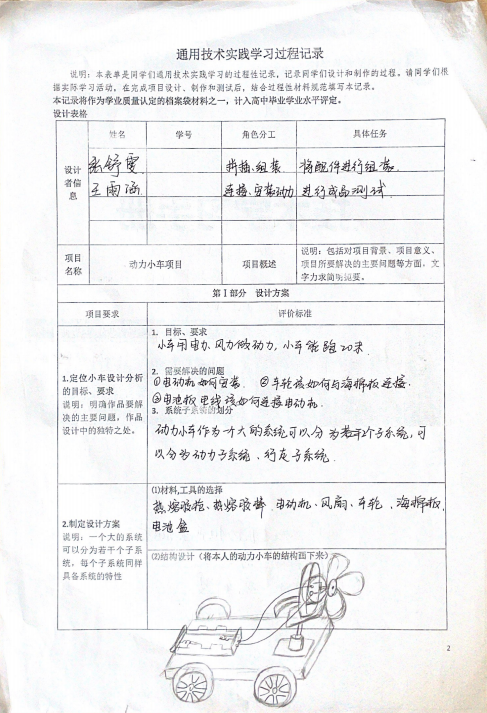 通用技术实践学习过程记录
说明：本表单是同学们通用技术实践学习的过程性记录，记录同学们设计和制作的过程。请同学们根
据实际学习活动，在完成项目设计、制作和测试后，结合过程性材料规范填写本记录。
本记录将作为学业质量认定的档案袋材料之一，计入高中毕业学业水平评定。
设计表格
设计者信息
姓名 学号 角色分工 具体任务
张舒雯 拼插、组装 将配件进行组装
王雨涵 连接、安装动力 进行成品测试
项目名称
动力小车项目
项目概述
说明：包括对项目背景、项目意义、
项目所要解决的主要问题等方面，文
字力求简明扼要。
第Ⅰ部分 设计方案
项目要求 评价标准
1.定位小车设计分析
的目标、要求
说明：明确作品要解
决的主要问题，作品
设计中的独特之处。
1. 目标、要求
小车用电力、风力做动力，小车能跑20米
2. 需要解决的问题
①电动机如何安装 ②车轮该如何与海棉板连接
③电池板电线该如何连接电动机
3. 系统子系统的划分
动力小车作为一个大的系统可以分为若干个子系统，可
以分为动力子系统、行走子系统
2.制定设计方案
说明：一个大的系统
可以分为若干个子系
统，每个子系统同样
具备系统的特性
(1)材料,工具的选择
热熔胶枪、热熔胶棒、电动机、风扇、车轮、海棉板，
电池盒
(2)结构设计（将本人的动力小车的结构画下来）
2